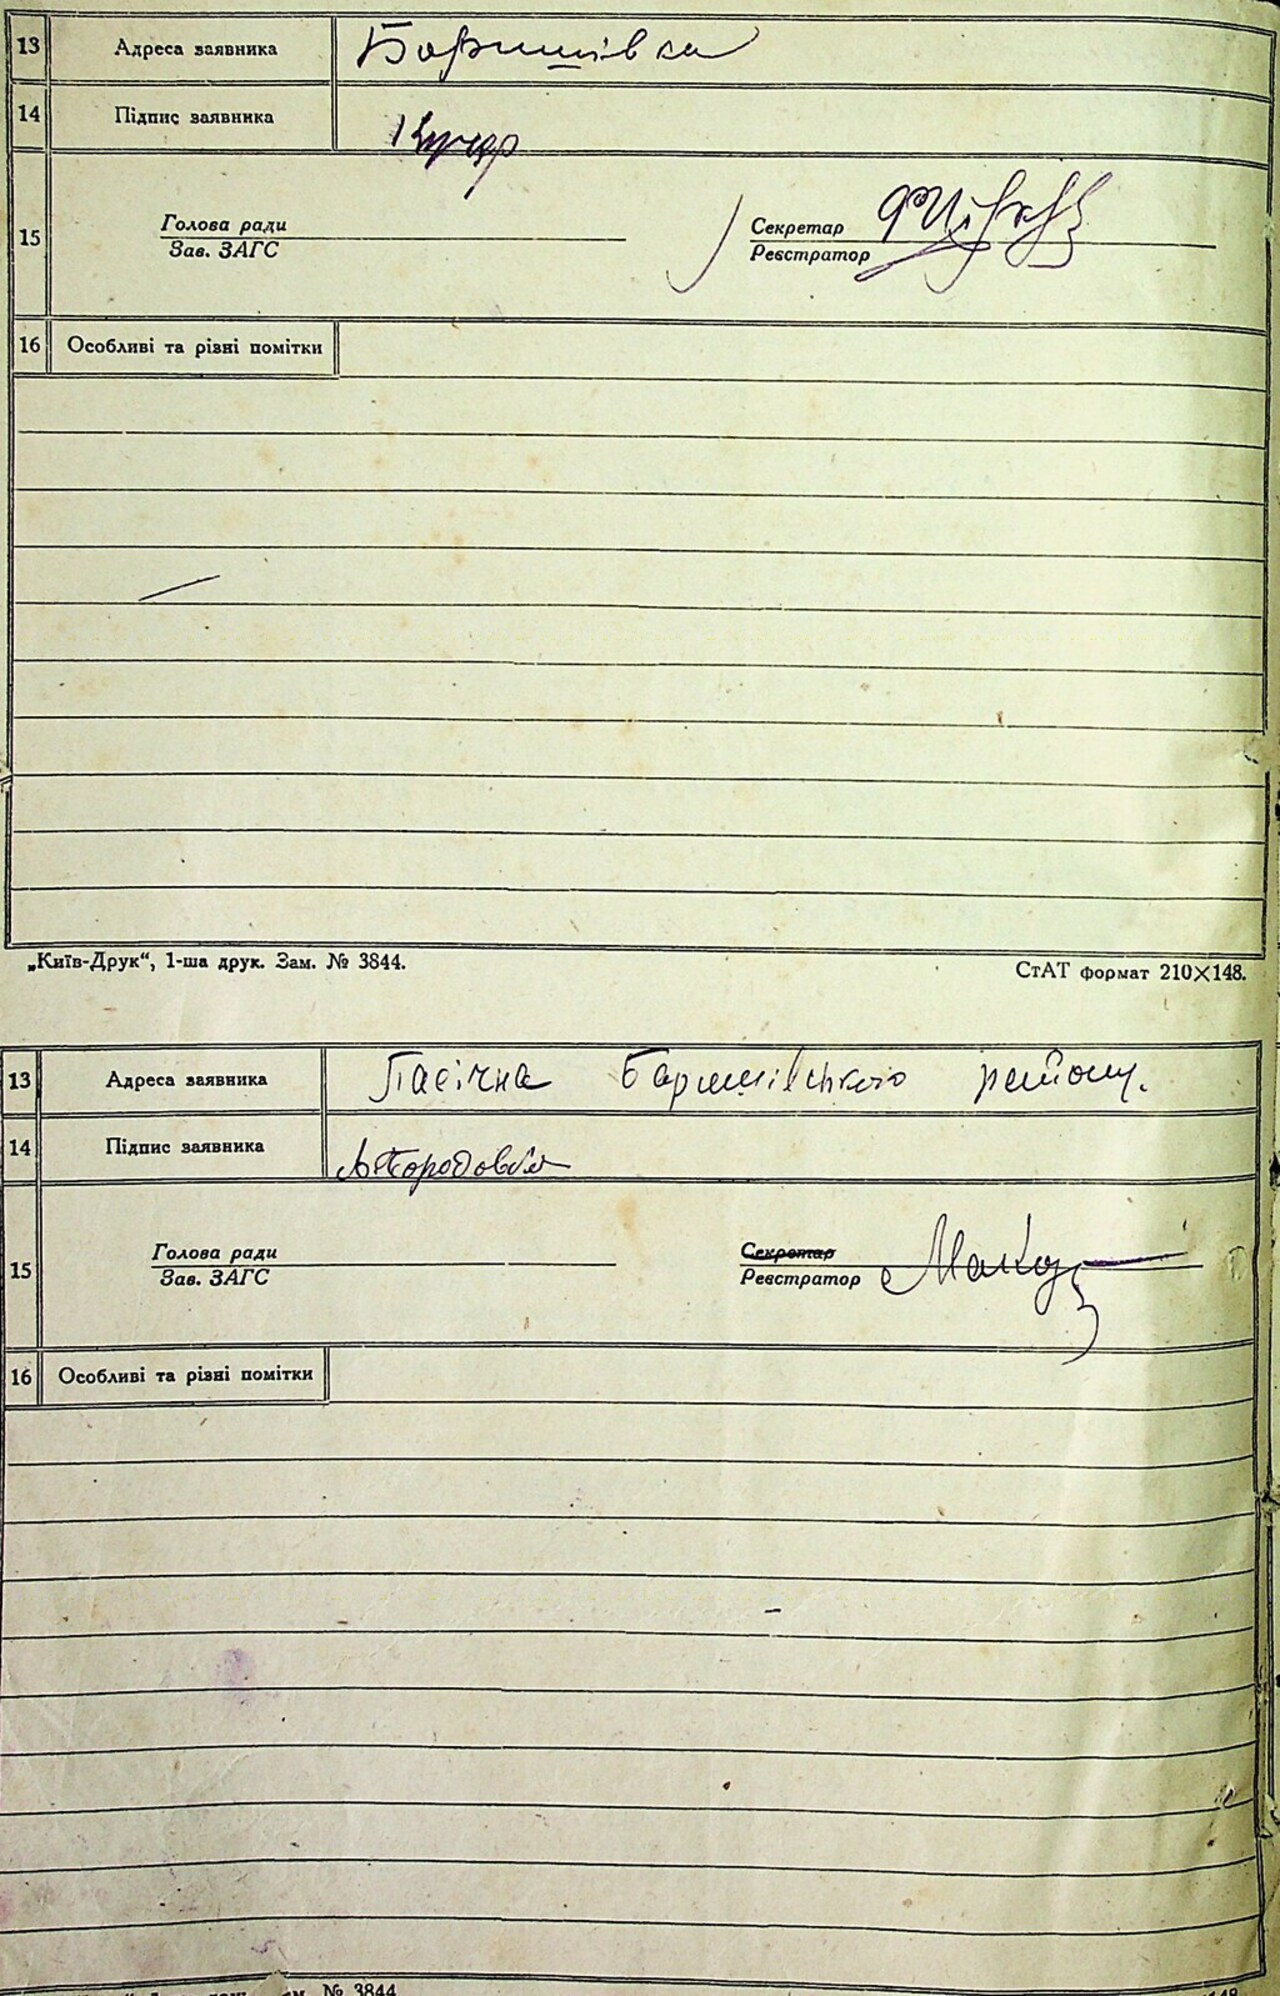 13 Адреса заявника Баришівка
14 Підпис заявника Кучер
15 Голова ради Секретар
Зав. ЗАГС Реєстратор
16 Особливі та різні помітки
„Київ-Друк“, 1-ша друк. Зам. № 3844. СтАТ формат 210×148.
13 Адреса заявника Пасічна Баришівського району.
14 Підпис заявника
15 Голова ради Секретар
Зав. ЗАГС Реєстратор
16 Особливі та різні помітки
№ 3844